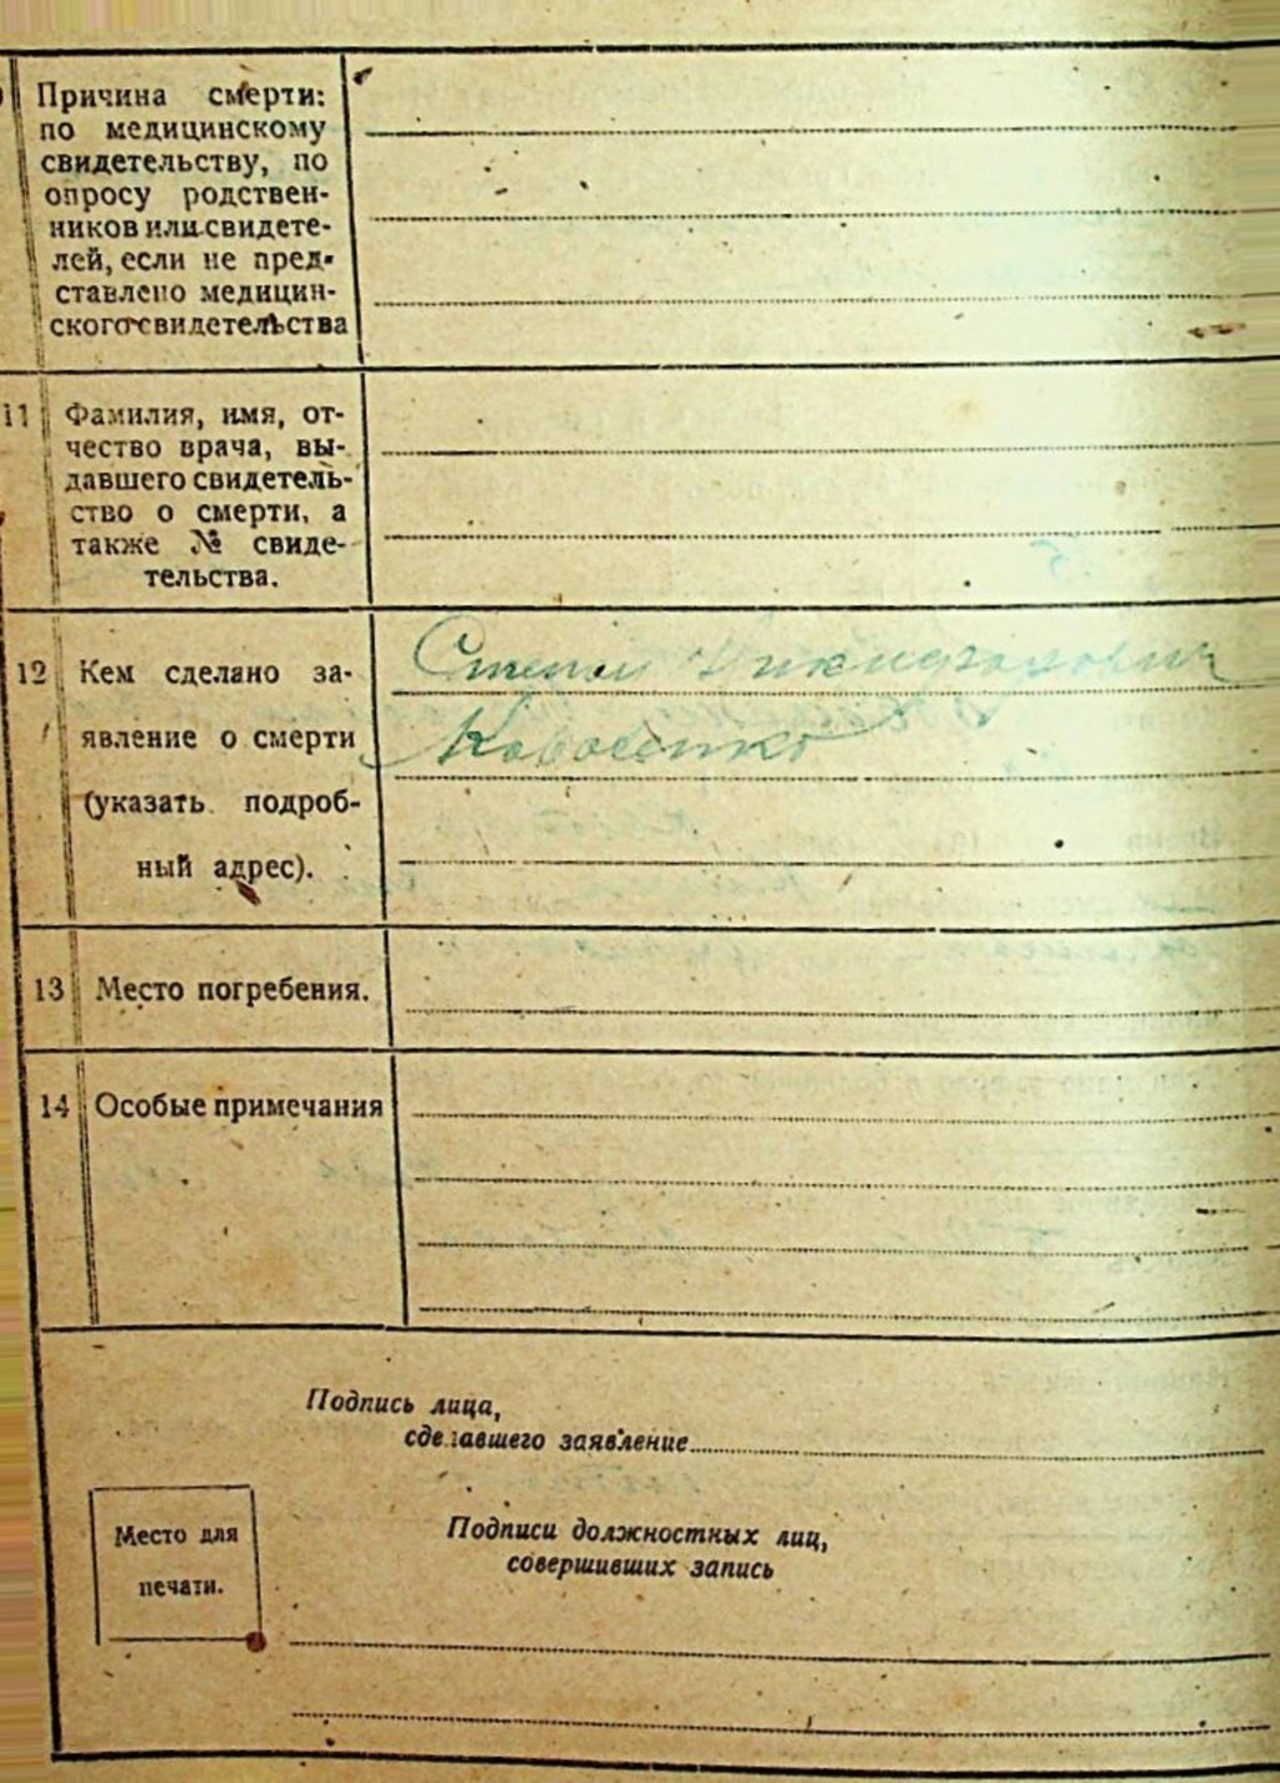 Причина смерти:
по медицинскому
свидетельству, по
опросу родствен-
ников или свидете-
лей, если не пред-
ставлено медицин-
ского свидетельства
11 Фамилия, имя, от-
чество врача, вы-
давшего свидетель-
ство о смерти, а
также № свиде-
тельства.
12 Кем сделано за-
явление о смерти
(указать подроб-
ный адрес).
Степан
13 Место погребения.
14 Особые примечания
Подпись лица,
сделавшего заявление
Место для
печати.
Подписи должностных лиц,
совершивших запись